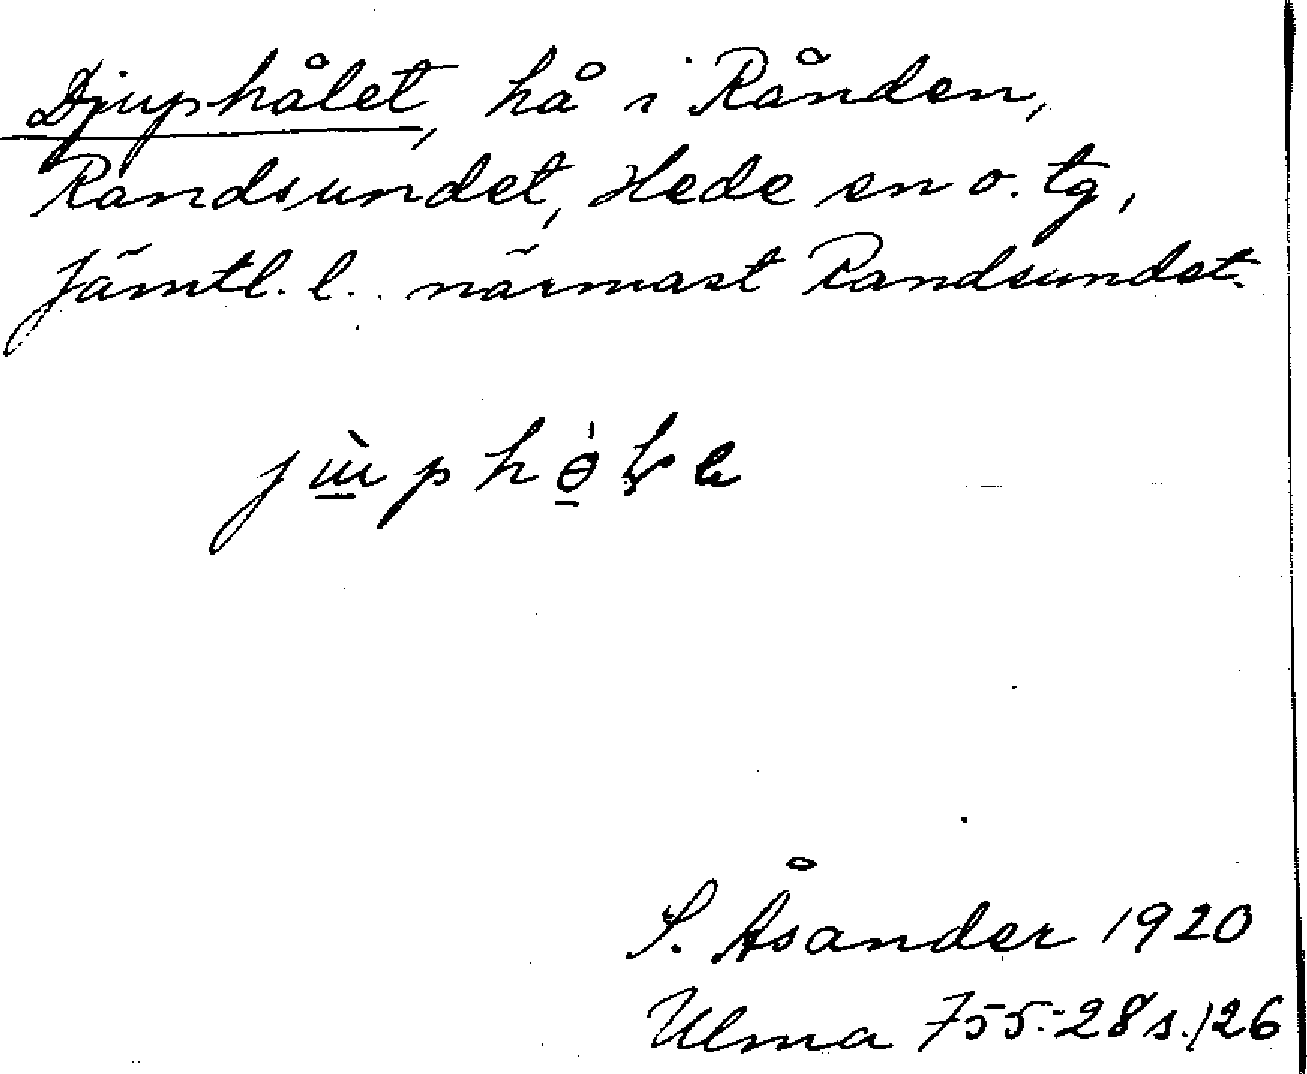 Djuphålet, hå i Rånden,
Randsundet, Hede sn o. tg,
Jämtl. l. närmast Randsundet.
S. Åsander 1920
Ulma 755:28 s. 126